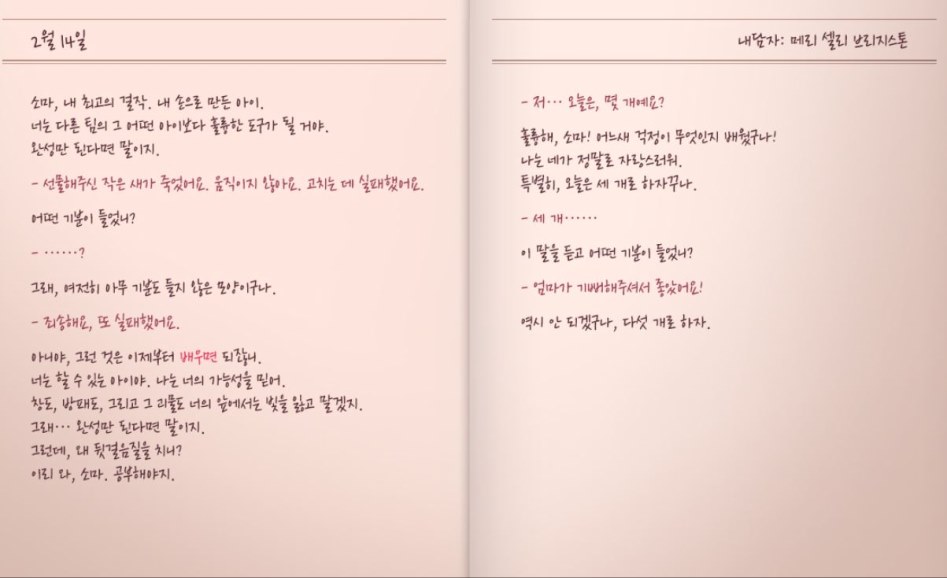 2월 14일
소마, 내 최고의 걸작. 내 손으로 만든 아이.
너는 다른 팀의 그 어떤 아이보다 훌륭한 도구가 될 거야.
완성만 된다면 말이지.
- 선물해주신 작은 새가 죽었어요. 움직이지 않아요. 고치는 데 실패했어요.
어떤 기분이 들었니?
- ⋯⋯?
그래, 여전히 아무 기분도 들지 않은 모양이구나.
- 죄송해요, 또 실패했어요.
아니야, 그런 것은 이제부터 배우면 되잖니.
너는 할 수 있는 아이야. 나는 너의 가능성을 믿어.
창도, 방패도, 그리고 그 괴물도 너의 앞에서는 빛을 잃고 말겠지.
그래⋯ 완성만 된다면 말이지.
그런데, 왜 뒷걸음질을 치니?
이리 와, 소마. 공부해야지.
내담자: 메리 셸리 브리지스톤
- 저⋯ 오늘은, 몇 개예요?
훌륭해, 소마! 어느새 걱정이 무엇인지 배웠구나!
나는 네가 정말로 자랑스러워.
특별히, 오늘은 세 개로 하자꾸나.
- 세 개⋯⋯
이 말을 듣고 어떤 기분이 들었니?
- 엄마가 기뻐해주셔서 좋았어요!
역시 안 되겠구나, 다섯 개로 하자.